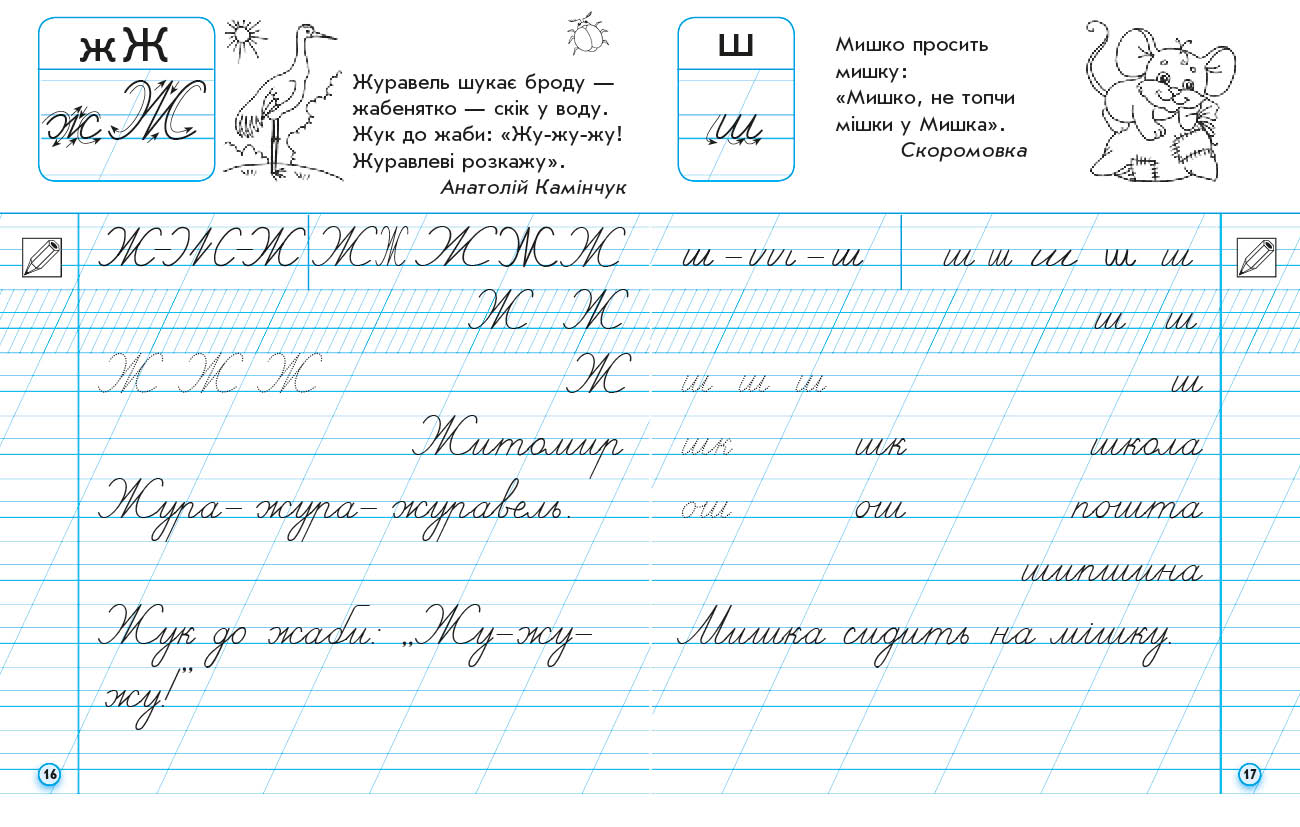 ж Ж
ж Ж
Журавель шукає броду —
жабенятко — скік у воду.
Жук до жаби: «Жу-жу-жу!
Журавлеві розкажу».
Анатолій Камінчук
Ж Ж Ж Ж Ж Ж Ж
Ж Ж
Ж Ж Ж Ж
Житомир
Жура– жура– журавель.
Жук до жаби: „Жу–жу–
жу!”
16
ш
ш
Мишко просить
мишку:
«Мишко, не топчи
мішки у Мишка».
Скоромовка
ш – ııı – ш ш ш ш ш ш
ш ш
ш ш ш ш
шк шк школа
ош ош пошта
шипшина
Мишка сидить на мішку.
17